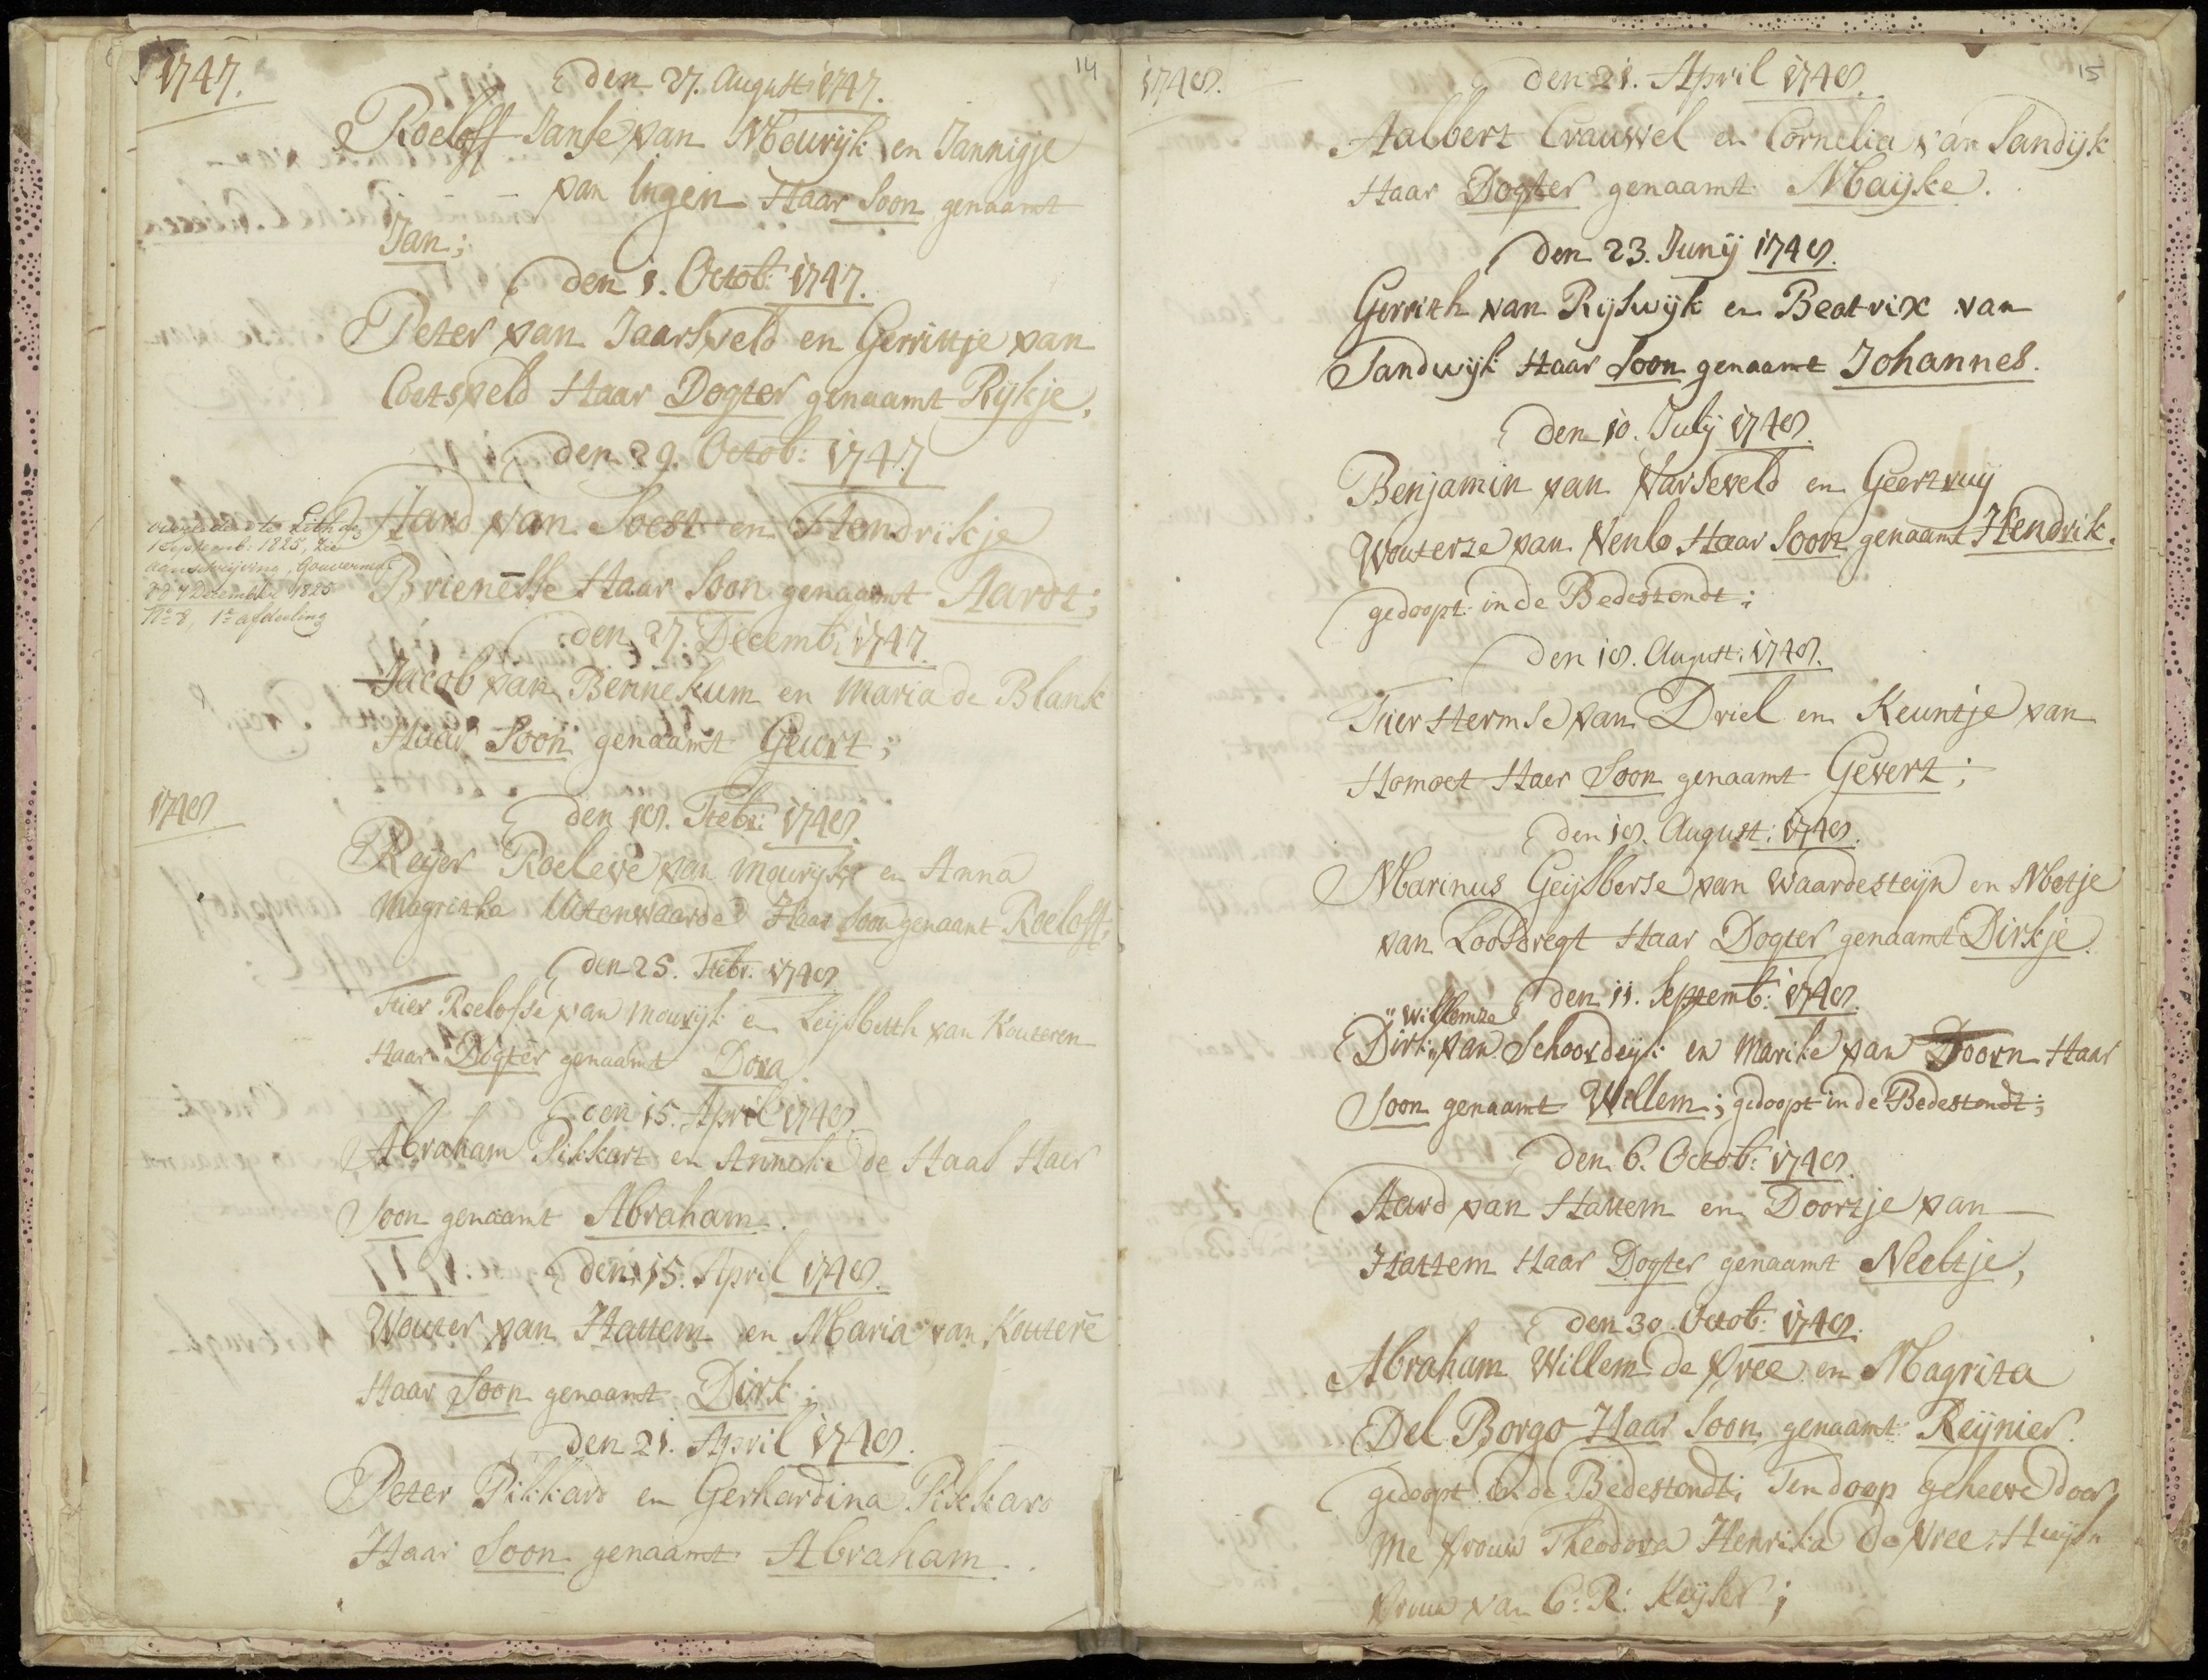 1747.
14
den 27. August: 1747.
Roeloff Janse van Mourijk en Jannigje
van Ingen Haar Soon genaamt
Jan;
den 1. Octob: 1747.
Peter van Jaarsveld en Gerrittje van
Coetsveld Haar Dogter genaamt Rijkje.
den 29. Octob: 1747
Aard van Soest en Hendrikje
Brienesse Haar Soon genaamt Aardt;
overleden te
1 Septemb: 1825, zie
aanschrijving, Gouvernem:
dd 7 December 1825
No 8, 1e afdeeling
den 27. Decemb: 1747.
Jacob van Bennekum en Maria de Blank
Haar Soon genaamt Geurt;
1748
den 18. Febr: 1748.
Reijer Roeleve van Mourijk en Anna
Magritha Uitenwaarde Haar Soon genaamt Roeloff;
den 25. Febr. 1748
Tier Roelofse van Mourijk en Leijsbetth van Kouteren
Haar Dogter genaamt Dora
den 15. April 1748.
Abraham Pikkart en Anneke de Haas Haer
Soon genaamt Abraham.
den 15. April 1748.
Wouter van Hattem en Maria van Koutere
Haar Soon genaamt Dirk;
den 21. April 1748.
Peter Pikkard en Gerhardina Pikkard
Haar Soon genaamt Abraham.
1748.
15
den 21. April 1748.
Aalbert Crauwel en Cornelia van Sandijk
Haar Dogter genaamt Maijke.
den 23. Junij 1748.
Gerrith van Rijswijk en Beatrix van
Sandwijk Haar Soon genaamt Johannes.
den 10. Julij 1748.
Benjamin van Varseveld en Geertruij
Wouterze van Venlo Haar Soon genaamt Hendrik.
gedoopt in de Bedestondt;
den 18. August: 1748.
Tier Hermse van Driel en Keuntje van
Homoet Haer Soon genaamt Gevert;
den 18. August: 1748.
Marinus Geijsberse van Waardesteijn en Metje
van Loosdregt Haar Dogter genaamt Dirkje.
den 11. Septemb: 1748.
" Willemze
Dirk " van Schoordeijk en Marike van Doorn Haar
Soon genaamt Willem; gedoopt in de Bedestondt;
den 6. Octob: 1748.
Aard van Hattem en Doortje van
Hattem Haar Dogter genaamt Neeltje,
den 30. Octob: 1748.
Abraham Willem de Vree en Magrita
Del Borgo Haar Soon genaamt Reijnier.
gedoopt in de Bedestondt; Ten doop geheeve door
Me Vrouw Theodora Henrika de Vree, Huijs
Vrouw van C: R: Keijser;